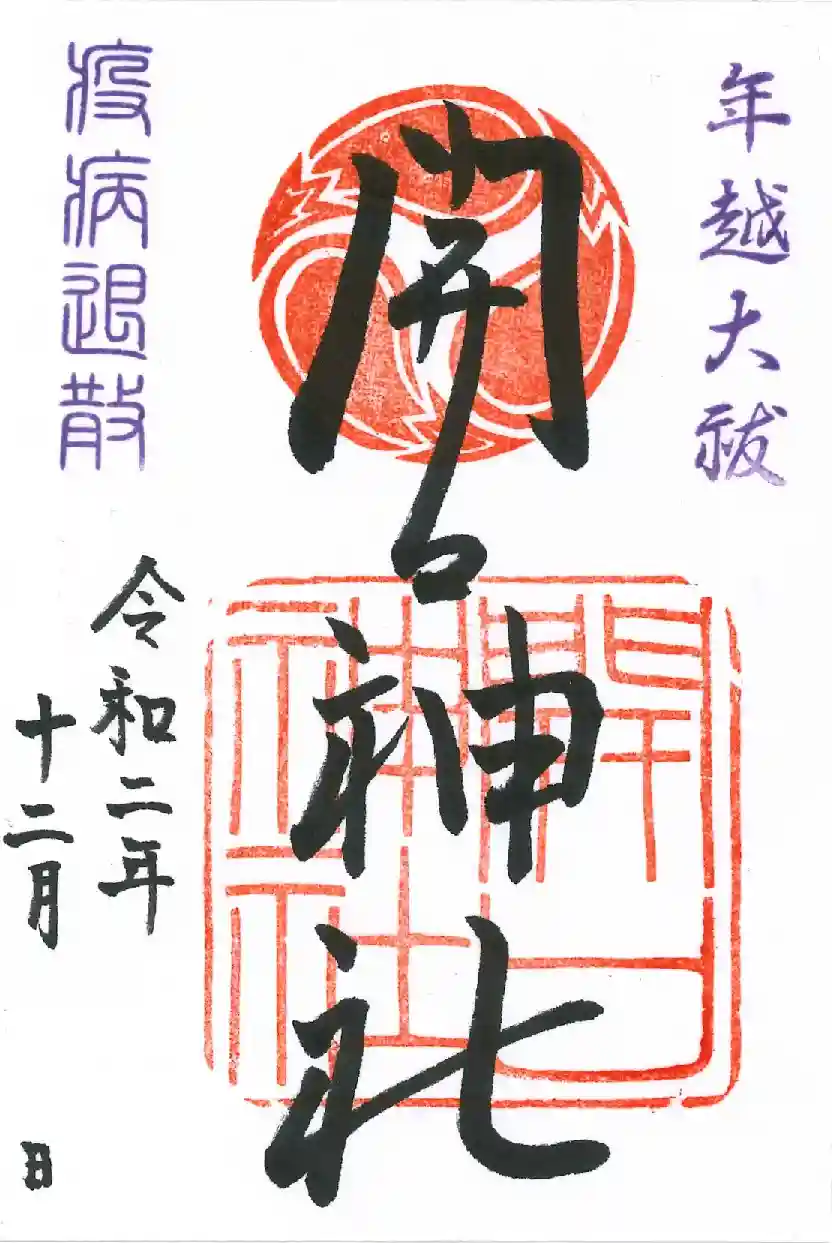 年越大祓
開口神社
開口神社
疫病退散
令和二年
十二月
日